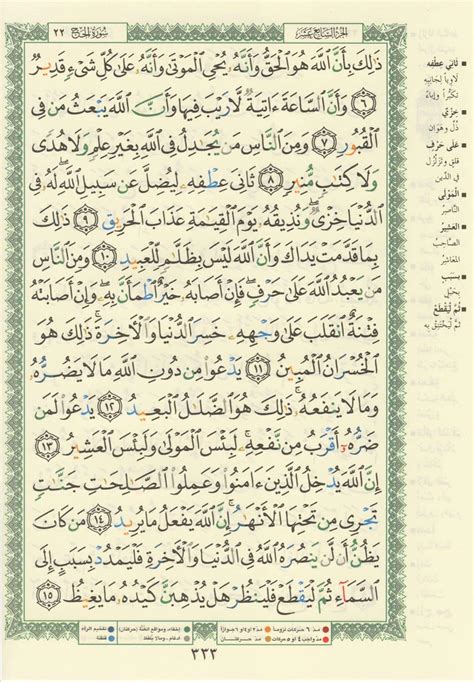 سورة الحج ٢٢
الجزء السابع عشر
ذَٰلِكَ بِأَنَّ ٱللَّهَ هُوَ ٱلْحَقُّ وَأَنَّهُۥ يُحْىِ ٱلْمَوْتَىٰ وَأَنَّهُۥ عَلَىٰ كُلِّ شَىْءٍ قَدِيرٌ
٦ وَأَنَّ ٱلسَّاعَةَ ءَاتِيَةٌ لَّا رَيْبَ فِيهَا وَأَنَّ ٱللَّهَ يَبْعَثُ مَن فِى
ٱلْقُبُورِ ٧ وَمِنَ ٱلنَّاسِ مَن يُجَـٰدِلُ فِى ٱللَّهِ بِغَيْرِ عِلْمٍ وَلَا هُدًى
وَلَا كِتَـٰبٍ مُّنِيرٍ ٨ ثَانِىَ عِطْفِهِۦ لِيُضِلَّ عَن سَبِيلِ ٱللَّهِ لَهُۥ فِى
ٱلدُّنْيَا خِزْىٌ وَنُذِيقُهُۥ يَوْمَ ٱلْقِيَـٰمَةِ عَذَابَ ٱلْحَرِيقِ ٩ ذَٰلِكَ
بِمَا قَدَّمَتْ يَدَاكَ وَأَنَّ ٱللَّهَ لَيْسَ بِظَلَّـٰمٍ لِّلْعَبِيدِ ١٠ وَمِنَ ٱلنَّاسِ
مَن يَعْبُدُ ٱللَّهَ عَلَىٰ حَرْفٍ فَإِنْ أَصَابَهُۥ خَيْرٌ ٱطْمَأَنَّ بِهِۦ وَإِنْ أَصَابَتْهُ
فِتْنَةٌ ٱنقَلَبَ عَلَىٰ وَجْهِهِۦ خَسِرَ ٱلدُّنْيَا وَٱلْـَٔاخِرَةَ ذَٰلِكَ هُوَ
ٱلْخُسْرَانُ ٱلْمُبِينُ ١١ يَدْعُوا۟ مِن دُونِ ٱللَّهِ مَا لَا يَضُرُّهُۥ
وَمَا لَا يَنفَعُهُۥ ذَٰلِكَ هُوَ ٱلضَّلَـٰلُ ٱلْبَعِيدُ ١٢ يَدْعُوا۟ لَمَن
ضَرُّهُۥٓ أَقْرَبُ مِن نَّفْعِهِۦ لَبِئْسَ ٱلْمَوْلَىٰ وَلَبِئْسَ ٱلْعَشِيرُ ١٣
إِنَّ ٱللَّهَ يُدْخِلُ ٱلَّذِينَ ءَامَنُوا۟ وَعَمِلُوا۟ ٱلصَّـٰلِحَـٰتِ جَنَّـٰتٍ
تَجْرِى مِن تَحْتِهَا ٱلْأَنْهَـٰرُ إِنَّ ٱللَّهَ يَفْعَلُ مَا يُرِيدُ ١٤ مَن كَانَ
يَظُنُّ أَن لَّن يَنصُرَهُ ٱللَّهُ فِى ٱلدُّنْيَا وَٱلْـَٔاخِرَةِ فَلْيَمْدُدْ بِسَبَبٍ إِلَى
ٱلسَّمَآءِ ثُمَّ لْيَقْطَعْ فَلْيَنظُرْ هَلْ يُذْهِبَنَّ كَيْدُهُۥ مَا يَغِيظُ ١٥
■ ثاني عطفه
لاوياً لجانبه
تكبراً وإباءً
■ خزي
ذل وهوان
■ على حرف
قلق وتزلزل
في الدين
■ المولى
الناصر
■ العشير
الصاحب
المعاشر
■ بسبب
بحبل
■ ثم ليقطع
ثم ليختنق به
مدّ ٦ حركات لزوماً
مدّ ٢ أو ٤ أو ٦ جوازاً
إخفاء، ومواقع الغنة (حركتان)
تفخيم الراء
مدّ واجب ٤ أو ٥ حركات
مدّ حركتان
إدغام، وما لا يلفظ
قلقلة
٣٣٣